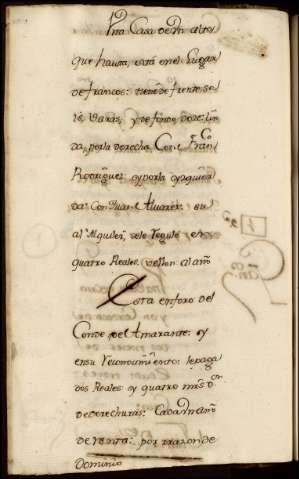 Una Casa de Un alto
que havita, está en el Lugar
de francos: tiene de frente sei
s varas, y de fondo doze: lin
da, por la derecha, Con Fran.co
Rodriguez y por la yzquier
da Con Juan Alvarez su
alquiler, se le regula en
quatro Reales de Vellon al año
Esta en foro del
Conde del Amarante: y
en su reconozimiento: le paga
dos Reales y quatro mrs de
derechuras: Cada Un año
de renta: por razon de
Dominio